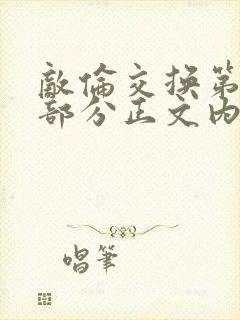 敵倫交換第
部分正文内
唱筆